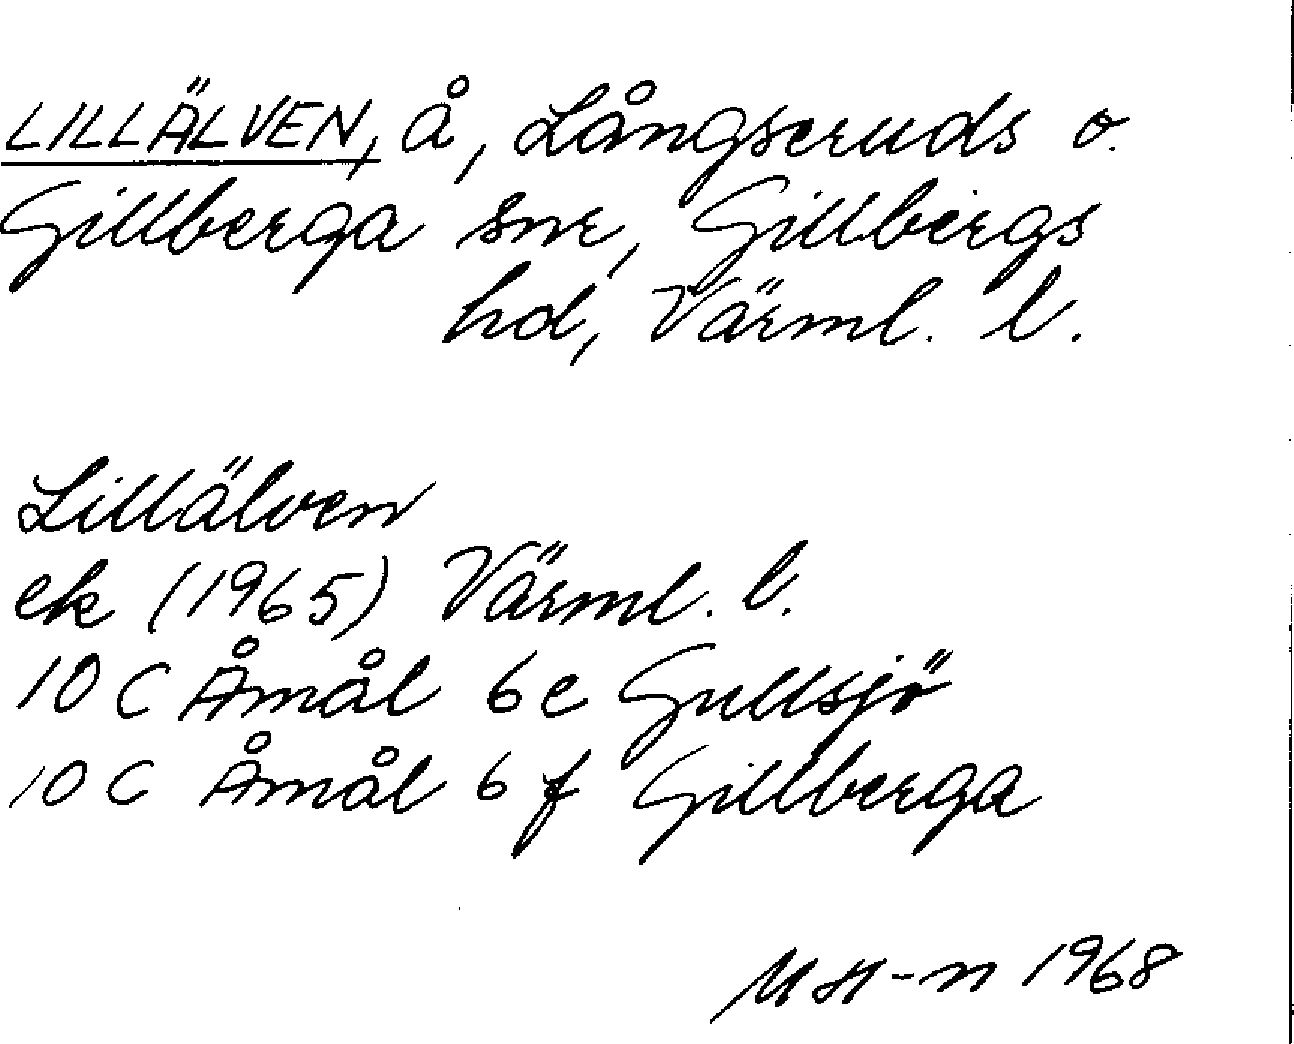 LILLÄLVEN, å, Långseruds o.
Gillberga snr, Gillbergs
hd, Värml. l.
Lillälven
ek (1965) Värml. l.
10 C Åmål 6 e Gullsjö
10 C Åmål 6 f Gillberga
MH-n 1968